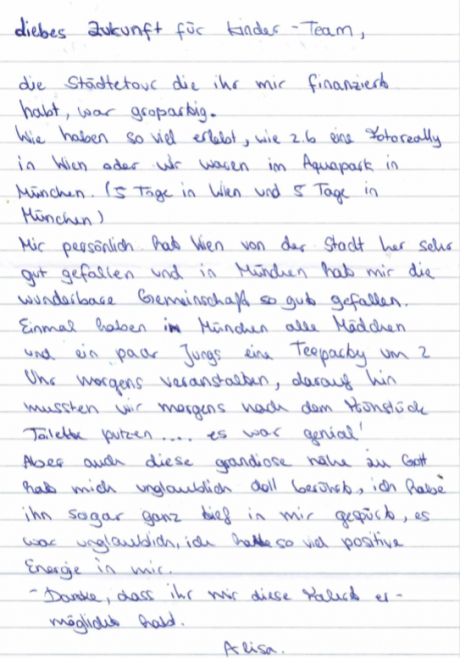 Liebes Zukunft für Kinder-Team,
die Städtetour die ihr mir finanziert
habt, war großartig.
Wie haben so viel erlebt, wie z.b eine Fotoreally
in Wien oder wir waren im Aquapark in
München. (5 Tage in Wien und 5 Tage in
München)
Mir persönlich hat Wien von der Stadt her sehr
gut gefallen und in München hat mir die
wunderbare Gemeinschaft so gut gefallen.
Einmal haben in München alle Mädchen
und ein paar Jungs eine Teeparty um 2
Uhr morgens veranstalten, darauf hin
mussten wir morgens nach dem Frühstück
Toilette putzen .... es war genial!
Aber auch diese grandiose nähe zu Gott
hat mich unglaublich doll berührt, ich habe
ihn sogar ganz tief in mir gespürt, es
war unglaublich, ich hatte so viel positive
Energie in mir.
- Danke, dass ihr mir diese er-
möglicht habt.
Alisa.